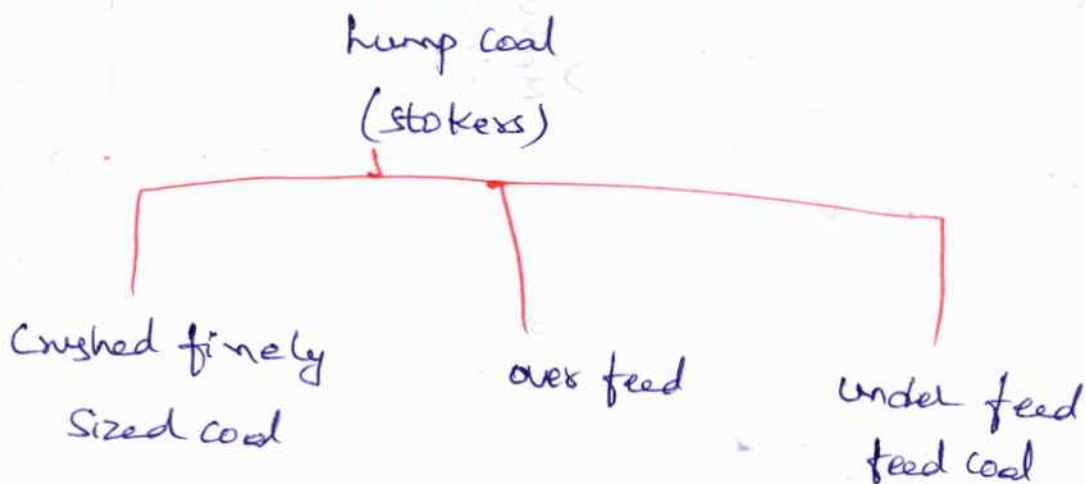 Lump coal
(stokers)
Crushed finely
Sized coal
over feed
under feed
feed coal